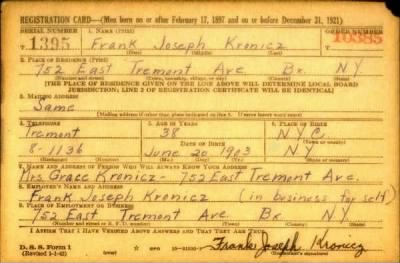 REGISTRATION CARD—(Men born on or after February 17, 1897 and on or before December 31, 1921)
SERIAL NUMBER 1. NAME (Print) ORDER NUMBER
T 1395 Frank Joseph Kronicz 10385
(First) (Middle) (Last)
2. PLACE OF RESIDENCE (Print)
752 East Tremont Ave. Bx. N.Y.
[THE PLACE OF RESIDENCE GIVEN ON THE LINE ABOVE WILL DETERMINE LOCAL BOARD
JURISDICTION; LINE 2 OF REGISTRATION CERTIFICATE WILL BE IDENTICAL]
3. MAILING ADDRESS
Same
[Mailing address if other than place indicated on line 2. If same insert word same]
4. TELEPHONE 5. AGE IN YEARS 6. PLACE OF BIRTH
Tremont 38 N.Y.C
DATE OF BIRTH
8-1136 June 20 1903 N.Y
(Exchange) (Number) (Mo.) (Day) (Yr.) (State or country)
7. NAME AND ADDRESS OF PERSON WHO WILL ALWAYS KNOW YOUR ADDRESS
Mrs Grace Kronicz - 752 East Tremont Ave.
8. EMPLOYER'S NAME AND ADDRESS
Frank Joseph Kronicz (in business for self)
9. PLACE OF EMPLOYMENT OR BUSINESS
752 East Tremont Ave. Bx N.Y
I AFFIRM THAT I HAVE VERIFIED ABOVE ANSWERS AND THAT THEY ARE TRUE.
D. S. S. Form 1
(Revised 1-1-42) (over) GPO Frank Joseph Kronicz